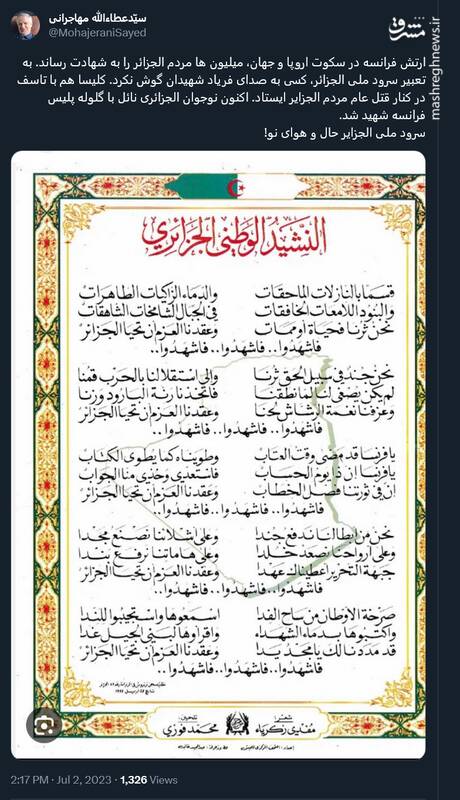 سیّدعطاءالله مهاجرانی
@MohajeraniSayed
مشرق
mashreghnews.ir
ارتش فرانسه در سکوت اروپا و جهان، میلیون ها مردم الجزائر را به شهادت رساند. به
تعبیر سرود ملی الجزائر، کسی به صدای فریاد شهیدان گوش نکرد. کلیسا هم با تاسف
در کنار قتل عام مردم الجزایر ایستاد. اکنون نوجوان الجزائری نائل با گلوله پلیس
فرانسه شهید شد.
سرود ملی الجزایر حال و هوای نو!
النشيد الوطني الجزائري
قسما بالنازلات الماحقات والدماء الزاكيات الطاهرات
والبنود اللامعات الخافقات في الجبال الشامخات الشاهقات
نحن ثرنا فحياة أو ممات وعقدنا العزم أن تحيا الجزائر
فاشهدوا.. فاشهدوا.. فاشهدوا..
نحن جند في سبيل الحق ثرنا وإلى استقلالنا بالحرب قمنا
لم يكن يصغى لنا لما نطقنا فاتخذنا رنة البارود وزنا
وعزفنا نغمة الرشاش لحنا وعقدنا العزم أن تحيا الجزائر
فاشهدوا.. فاشهدوا.. فاشهدوا..
يا فرنسا قد مضى وقت العتاب وطويناه كما يطوى الكتاب
يا فرنسا إن ذا يوم الحساب فاستعدي وخذي منا الجواب
إن في ثورتنا فصل الخطاب وعقدنا العزم أن تحيا الجزائر
فاشهدوا.. فاشهدوا.. فاشهدوا..
نحن من أبطالنا ندفع جندا وعلى أشلائنا نصنع مجدا
وعلى أرواحنا نصعد خلدا وعلى هاماتنا نرفع بندا
جبهة التحرير أعطيناك عهدا وعقدنا العزم أن تحيا الجزائر
فاشهدوا.. فاشهدوا.. فاشهدوا..
صرخة الأوطان من ساح الفدا اسمعوها واستجيبوا للندا
واكتبوها بدماء الشهداء واقرأوها لبني الجيل غدا
قد مددنا لك يا مجد يدا وعقدنا العزم أن تحيا الجزائر
فاشهدوا.. فاشهدوا.. فاشهدوا..
شعر: مفدي زكرياء
تلحين: محمد فوزي
2:17 PM · Jul 2, 2023 · 1,326 Views